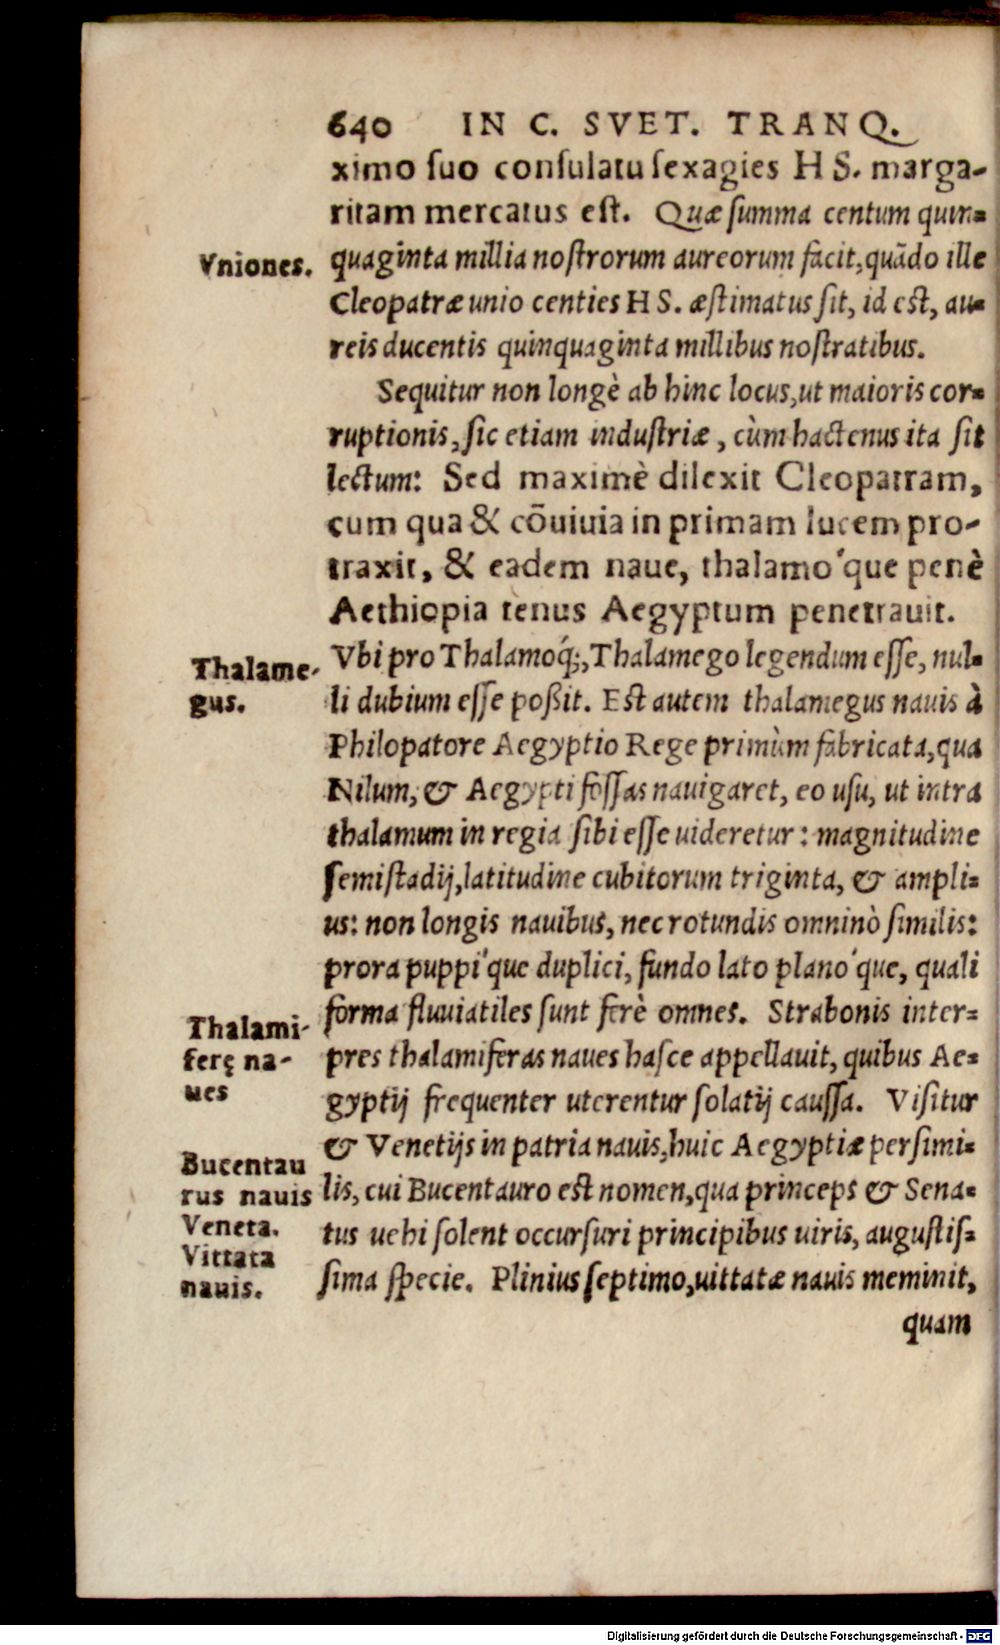 640 IN C. SVET. TRANQ.
ximo suo consulatu sexagies HS. marga-
ritam mercatus est. Quæ summa centum quin-
Vniones.
quaginta millia nostrorum aureorum facit, quãdo ille
Cleopatræ unio centies HS. æstimatus sit, id est, au-
reis ducentis quinquaginta millibus nostratibus.
Sequitur non longè ab hinc locus, ut maioris cor-
ruptionis, sic etiam industriæ, cùm hactenus ita sit
lectum: Sed maximè dilexit Cleopatram,
cum qua & cõuiuia in primam lucem pro-
traxit, & eadem naue, thalamo'que penè
Aethiopia tenus Aegyptum penetrauit.
Thalame-
gus.
Vbi pro Thalamoq́;, Thalamego legendum esse, nul-
li dubium esse poßit. Est autem thalamegus nauis à
Philopatore Aegyptio Rege primùm fabricata, qua
Nilum, & Aegypti fossas nauigaret, eo usu, ut intra
thalamum in regia sibi esse uideretur: magnitudine
semistadij, latitudine cubitorum triginta, & ampli-
us: non longis nauibus, nec rotundis omninò similis:
prora puppi'que duplici, fundo lato plano'que, quali
forma fluuiatiles sunt ferè omnes. Strabonis inter-
Thalami-
ferę na-
ues
pres thalamiferas naues hasce appellauit, quibus Ae-
gyptij frequenter uterentur solatij caussa. Visitur
& Venetijs in patria nauis, huic Aegyptiæ persimi-
Bucentau
rus nauis
Veneta.
Vittata
nauis.
lis, cui Bucentauro est nomen, qua princeps & Sena-
tus uehi solent occursuri principibus uiris, augustis-
sima specie. Plinius septimo, uittatæ nauis meminit,
quam
Digitalisierung gefördert durch die Deutsche Forschungsgemeinschaft - DFG